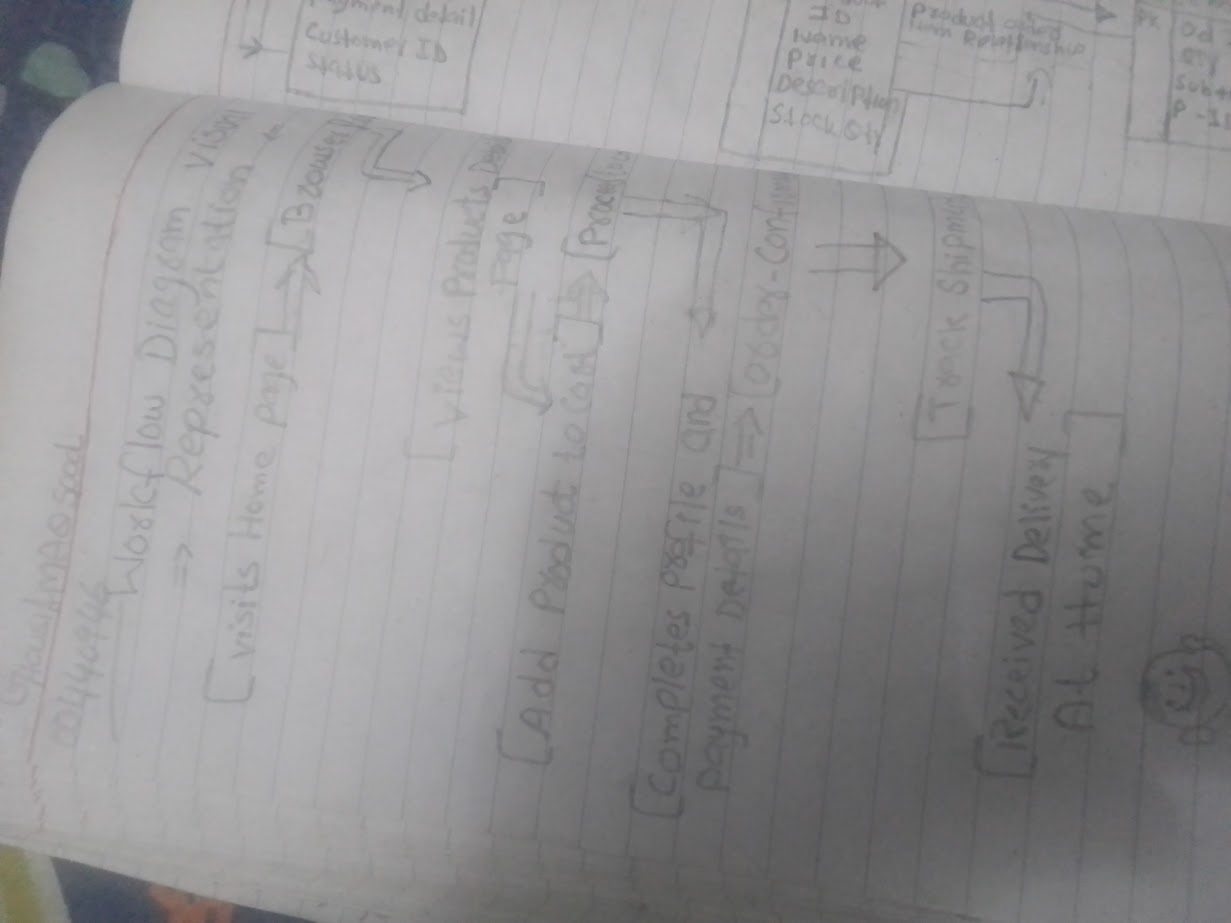 Payment detail
Customer ID
Status
ID
Name
Price
Description
Stock Qty
Product
Relationship
PK
Od
QTY
Sub
P-I
00440946
Workflow Diagram
=> Representation
[Visits Home page] → [Browse
[Views Products
Page]
[Add Product to Cart] ⇒ [Procee
[Completes profile and
payment Details] ⇒ [Order-Confirm
[Track Shipm
[Received Delivery
At Home]